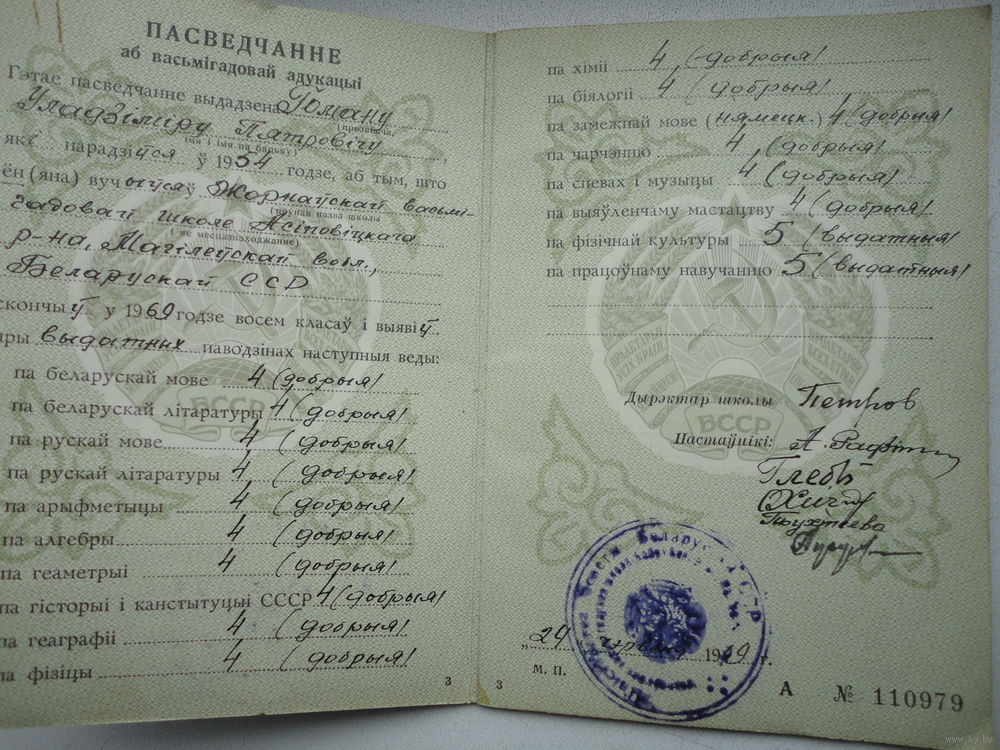 ПАСВЕДЧАННЕ
аб васьмігадовай адукацыі
Гэтае пасведчанне выдадзена Гоману
(прозвішча,
Уладзіміру Пятровічу,
імя і імя па бацьку)
які нарадзіўся ў 1954 годзе, аб тым, што
ён (яна) вучыўся ў Жорнаўскай васьмі-
(поўная назва школы
гадовай школе Асіповіцкага
і яе месцазнаходжанне)
р-на, Магілеўскай вобл.,
Беларускай ССР
скончыў у 1969 годзе восем класаў і выявіў
пры выдатных паводзінах наступныя веды:
па беларускай мове 4 (добрыя)
па беларускай літаратуры 4 (добрыя)
па рускай мове 4 (добрыя)
па рускай літаратуры 4 (добрыя)
па арыфметыцы 4 (добрыя)
па алгебры 4 (добрыя)
па геаметрыі 4 (добрыя)
па гісторыі і канстытуцыі СССР 4 (добрыя)
па геаграфіі 4 (добрыя)
па фізіцы 4 (добрыя)
3
па хіміі 4 (добрыя)
па біялогіі 4 (добрыя)
па замежнай мове (нямецк.) 4 (добрыя)
па чарчэнню 4 (добрыя)
па спевах і музыцы 4 (добрыя)
па выяўленчаму мастацтву 4 (добрыя)
па фізічнай культуры 5 (выдатныя)
па працоўнаму навучанню 5 (выдатныя)
БССР
БССР
Дырэктар школы Петров
Настаўнікі:
„24 чэрвеня 1969 г.
М. П.
3
А № 110979
www.ay.by